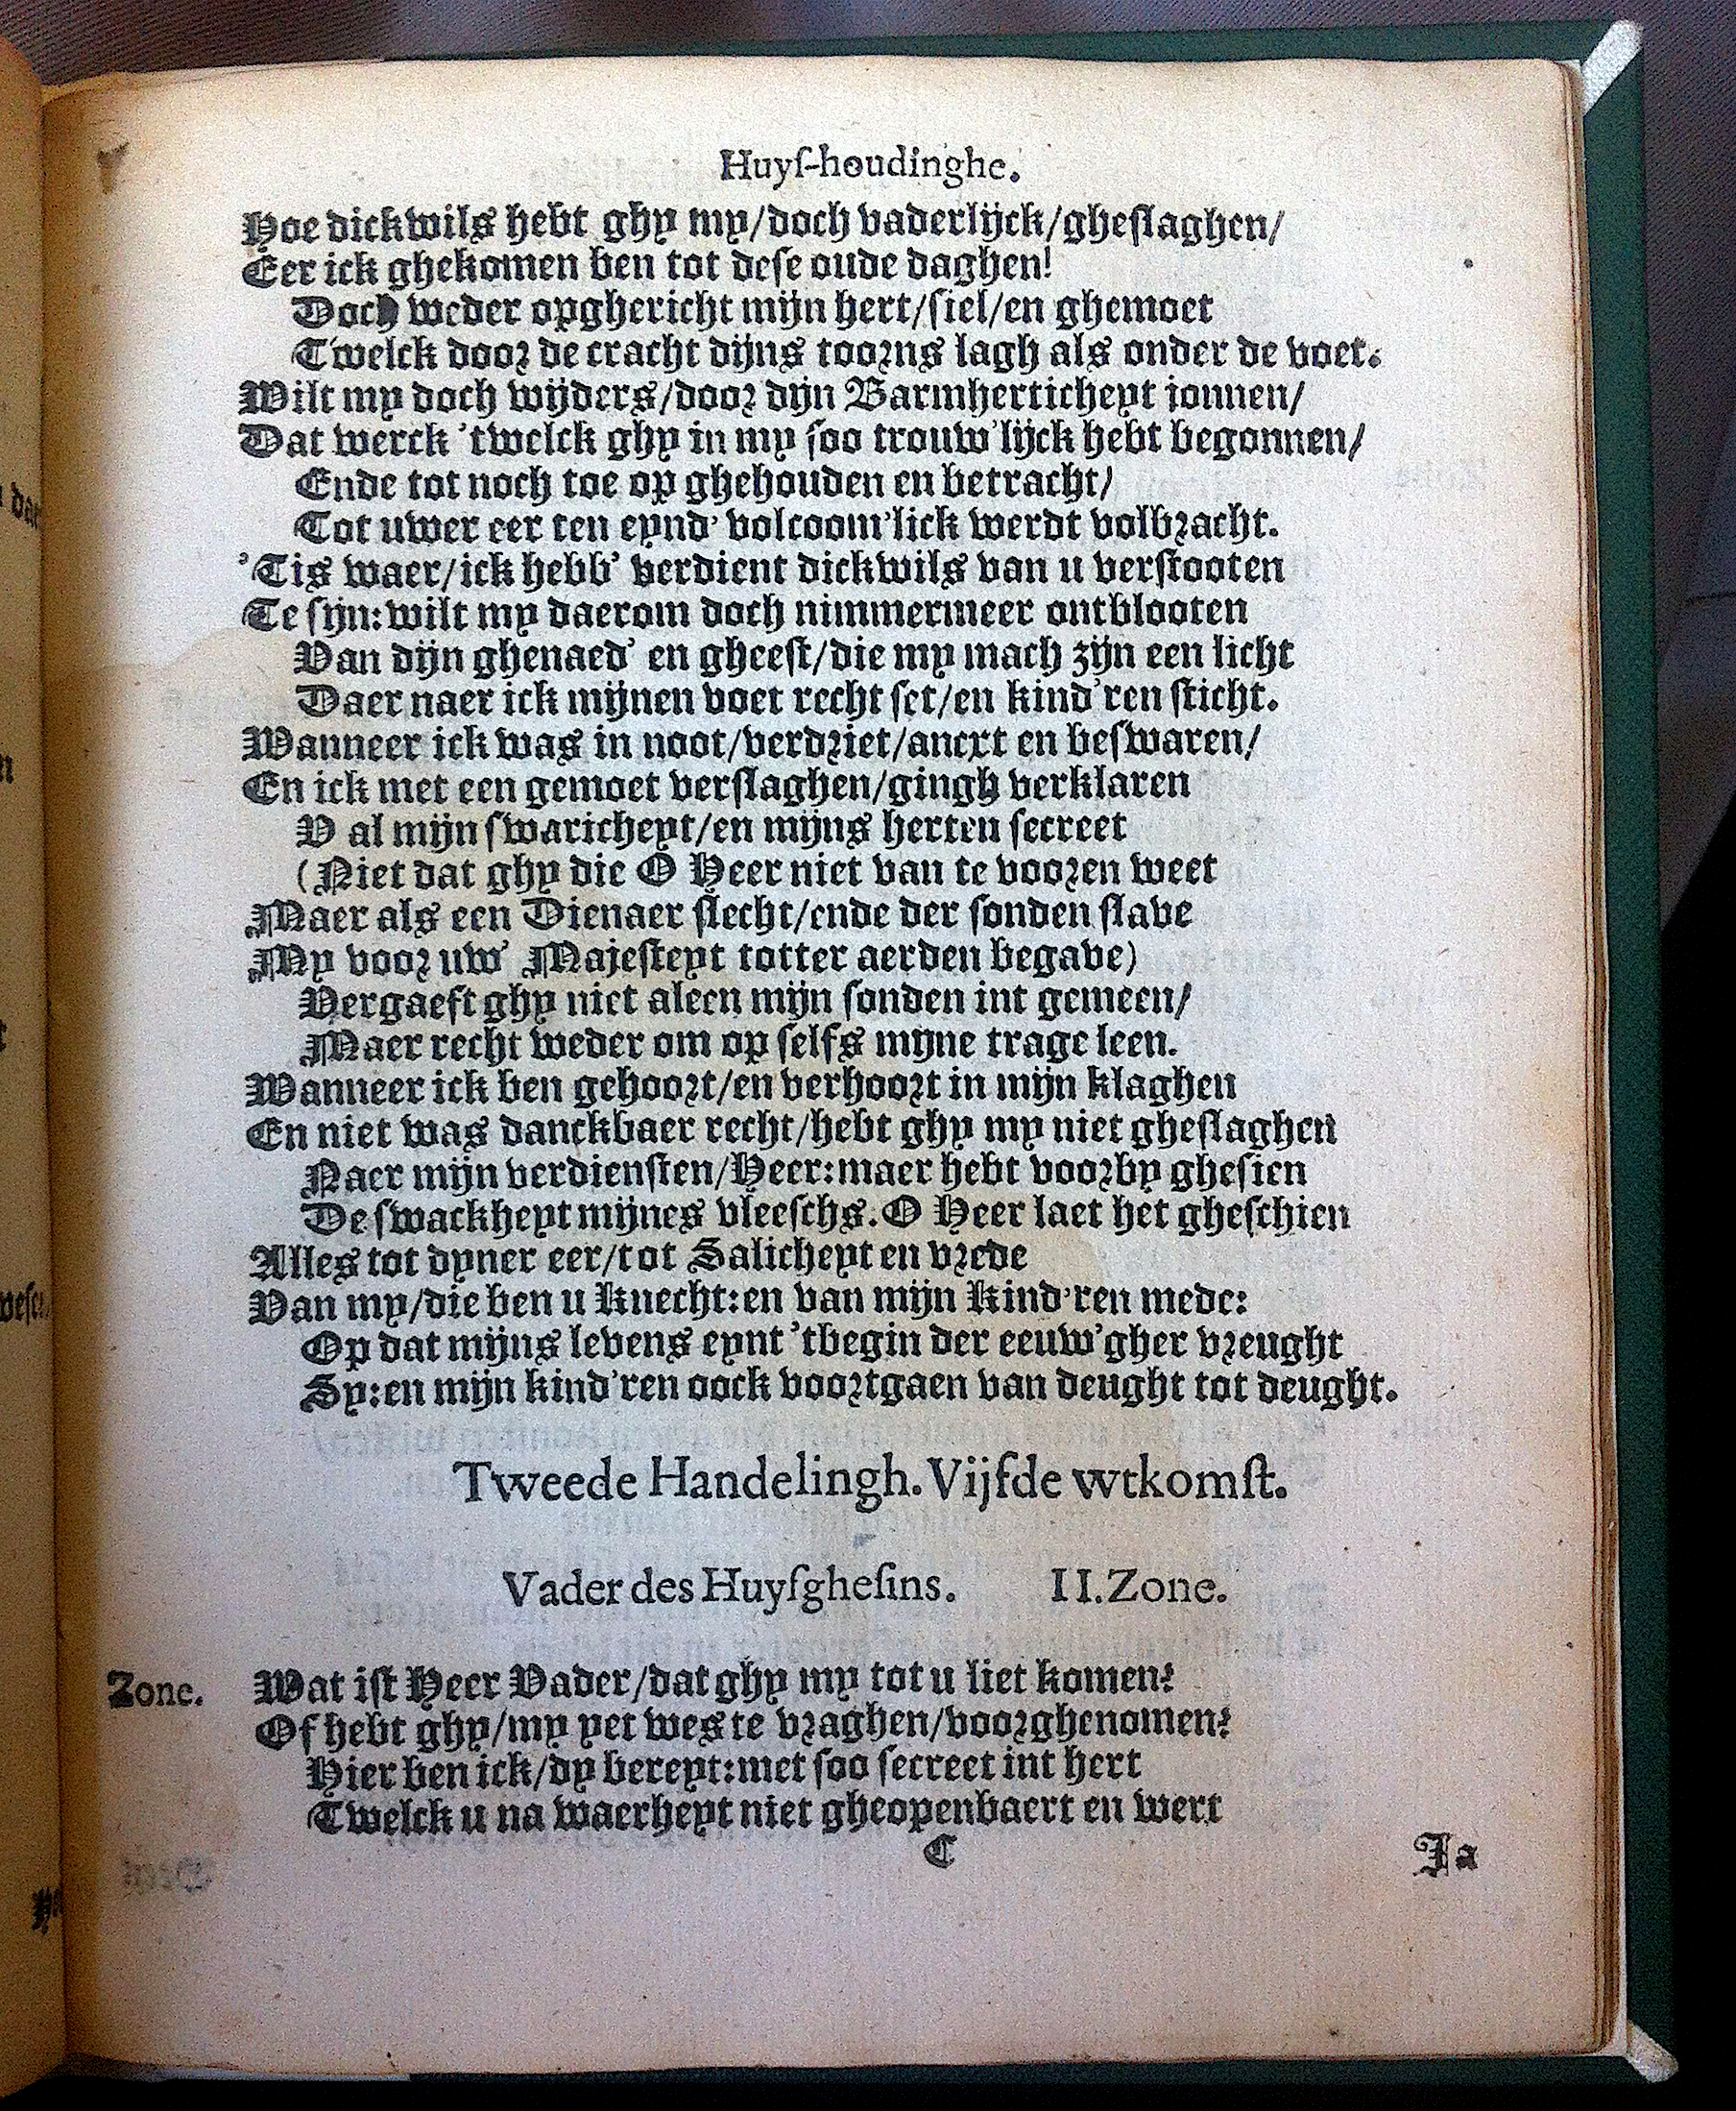 Huyſ-houdinghe.
Hoe dickwils hebt ghy my/doch vaderlijck/gheſlaghen/
Eer ick ghekomen ben tot deſe oude daghen!
Doch weder opghericht mijn hert/ſiel/en ghemoet
Twelck door de cracht dijns toorns lagh als onder de voet.
Wilt my doch wijders/door dijn Barmherticheyt jonnen/
Dat werck 'twelck ghy in my ſoo trouw'lijck hebt begonnen/
Ende tot noch toe op ghehouden en betracht/
Tot uwer eer ten eynd' volcoom'lick werdt volbracht.
'Tis waer/ick hebb' verdient dickwils van u verſtooten
Te ſijn: wilt my daerom doch nimmermeer ontblooten
Van dijn ghenaed' en gheeſt/die my mach zijn een licht
Daer naer ick mijnen voet recht ſet/en kind'ren ſticht.
Wanneer ick was in noot/verdriet/ancxt en beſwaren/
En ick met een gemoet verſlaghen/gingh verklaren
V al mijn ſwaricheyt/en mijns herten ſecreet
(Niet dat ghy die O Heer niet van te vooren weet
Maer als een Dienaer ſlecht/ende der ſonden ſlave
My voor uw' Majeſteyt totter aerden begave)
Vergaeft ghy niet aleen mijn ſonden int gemeen/
Maer recht weder om op ſelfs mijne trage leen.
Wanneer ick ben gehoort/en verhoort in mijn klaghen
En niet was danckbaer recht/hebt ghy my niet gheſlaghen
Naer mijn verdienſten/Heer: maer hebt voorby gheſien
De ſwackheyt mijnes vleeſchs. O Heer laet het gheſchien
Alles tot dyner eer/tot Salicheyt en vrede
Van my/die ben u Knecht: en van mijn Kind'ren mede:
Op dat mijns levens eynt 'tbegin der eeuw'gher vreught
Sy: en mijn kind'ren oock voortgaen van deught tot deught.
Tweede Handelingh. Vijfde wtkomſt.
Vader des Huyſgheſins. II. Zone.
Zone. Wat iſt Heer Vader/dat ghy my tot u liet komen?
Of hebt ghy/my yet wes te vraghen/voorghenomen?
Hier ben ick/dy bereyt: met ſoo ſecreet int hert
Twelck u na waerheyt niet gheopenbaert en wert
C Ja